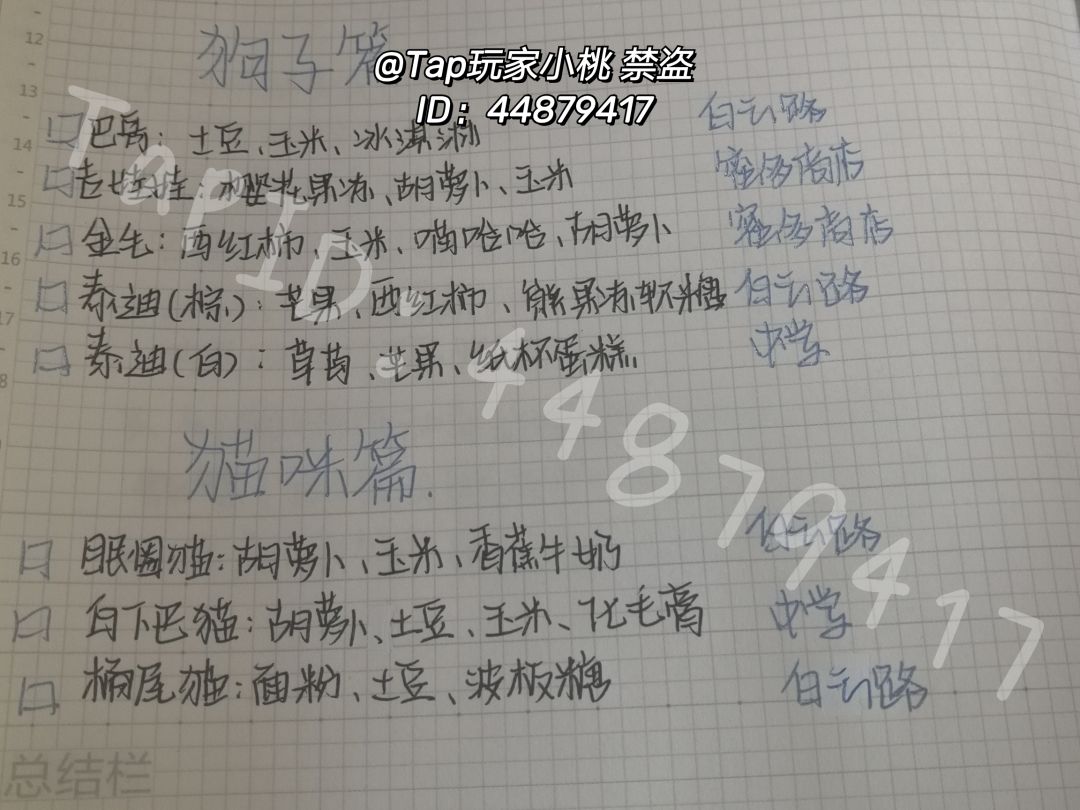 12
狗子篇
@Tap玩家小桃 禁盗
ID：44879417
13
巴哥：土豆、玉米、冰淇淋 白云路
14
吉娃娃：樱花果冻、胡萝卜、玉米 蜜多商店
15
金毛：西红柿、玉米、喵哈哈、胡萝卜 蜜多商店
16
泰迪(棕)：芒果、西红柿、熊果冻软糖 白云路
17
泰迪(白)：草莓、芒果、纸杯蛋糕 中学
8
猫咪篇.
眼圈猫：胡萝卜、玉米、香蕉牛奶 白云路
白下巴猫：胡萝卜、土豆、玉米、化毛膏 中学
橘尾猫：面粉、土豆、波板糖 白云路
总结栏
TapID：44879417